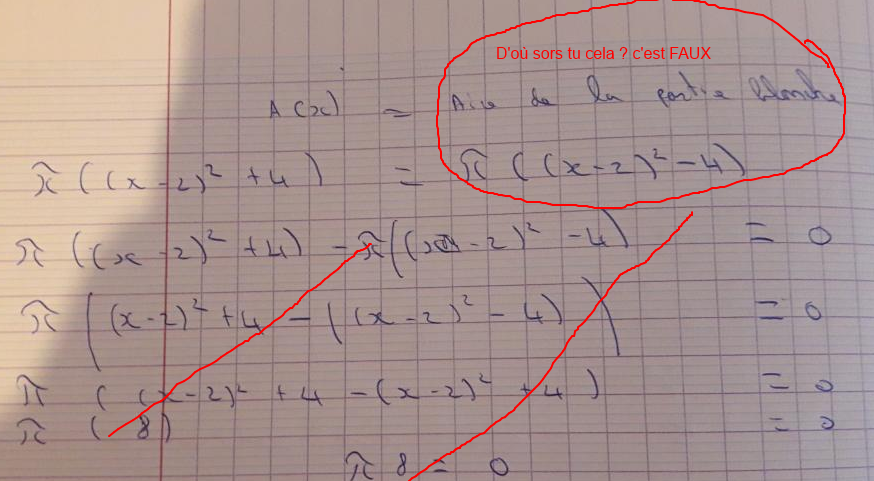 D'où sors tu cela ? c'est FAUX
A(x) = Aire de la partie blanche
π ((x-2)² + 4) = π ((x-2)² - 4)
π ((x-2)² + 4) - π((x-2)² - 4) = 0
π ((x-2)² + 4 - ((x-2)² - 4)) = 0
π ((x-2)² + 4 - (x-2)² + 4) = 0
π (8) = 0
π 8 = 0